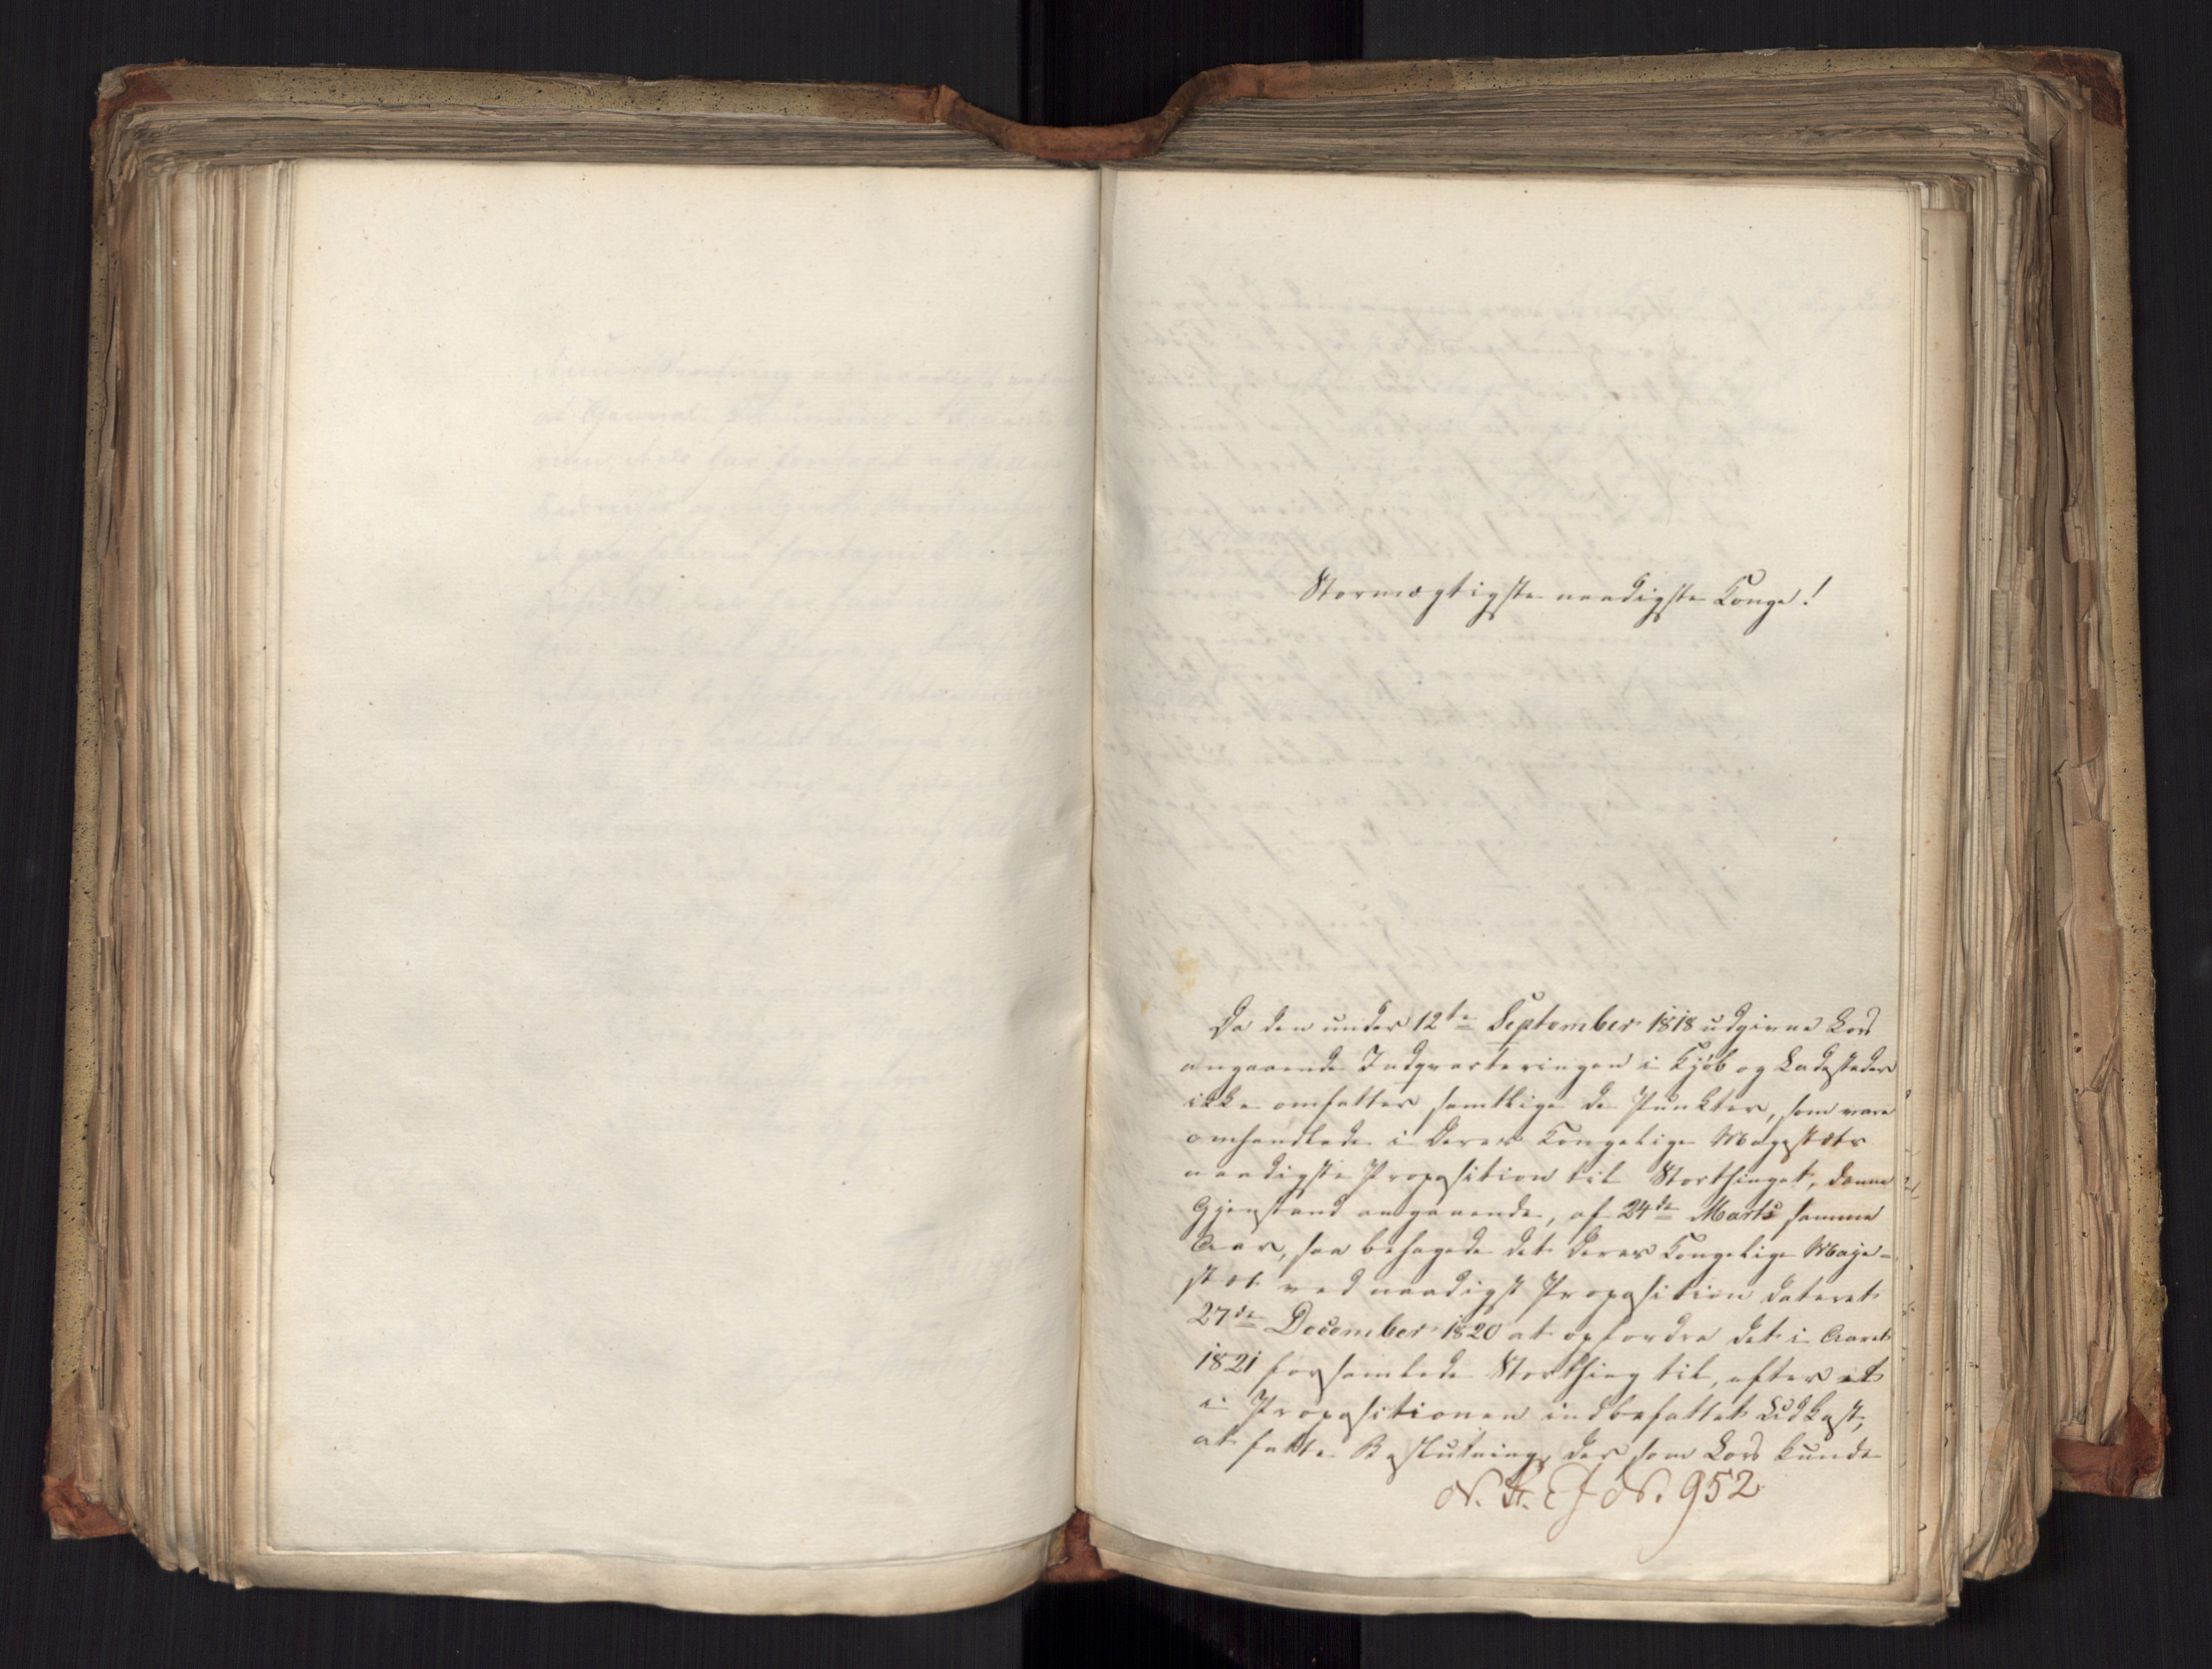 Stormægtigste naadigste Konge!
Da den under 12te September 1818 udgivne Lov
angaaende Indqvarteringen i Kjøb og Ladestæder
ikke omfatter samtlige de Punkter, som vare
omhandlede i Deres Kongelige Majestæts
naadigste Proposition til Storthinget, denne
Gjenstand angaaende, af 24de Marts samme
Aar, saa behagede det Deres Kongelige Maje-
stæt ved naadigst Proposition dateret
27de December 1820 at opfordre det i Aaret
1821 forsamlede Storthing til, efter et
i Propositionen indbefattet Udkast,
at fatte Beslutning, der som Lov kunde
No. 952